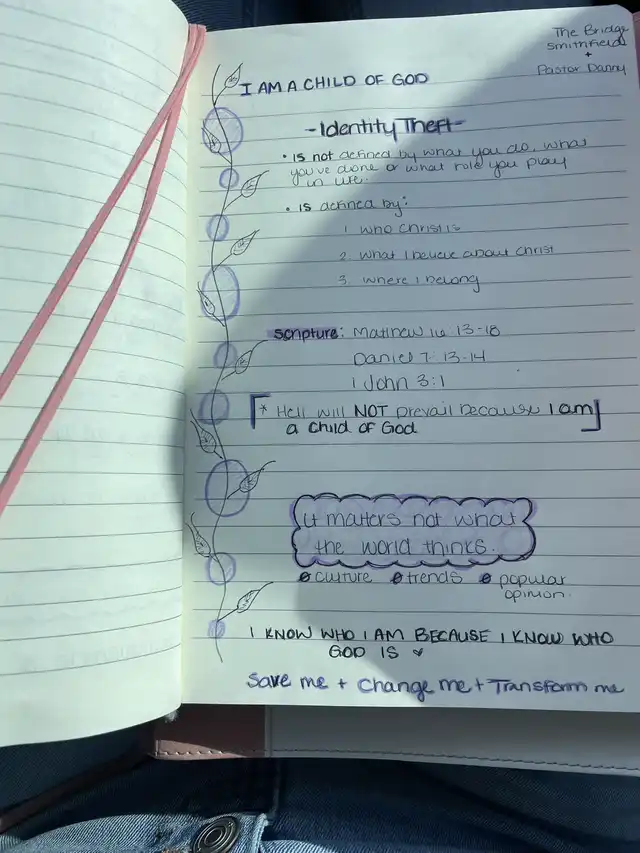 The Bridge
Smithfield
+
Pastor Danny
I AM A CHILD OF GOD
-Identity Theft-
• IS not defined by what you do, what
you've done or what role you play
in life.
• IS defined by:
1 who Christ is
2. what I believe about Christ
3. where I belong
scripture: Matthew 16 13-18
Daniel 7 13-14
1 John 3:1
[* Hell will NOT prevail because I am]
a child of God
it matters not what
the world thinks.
culture trends popular
opinion.
I KNOW WHO I AM BECAUSE I KNOW WHO
GOD IS ♥
Save me + Change me + Transform me